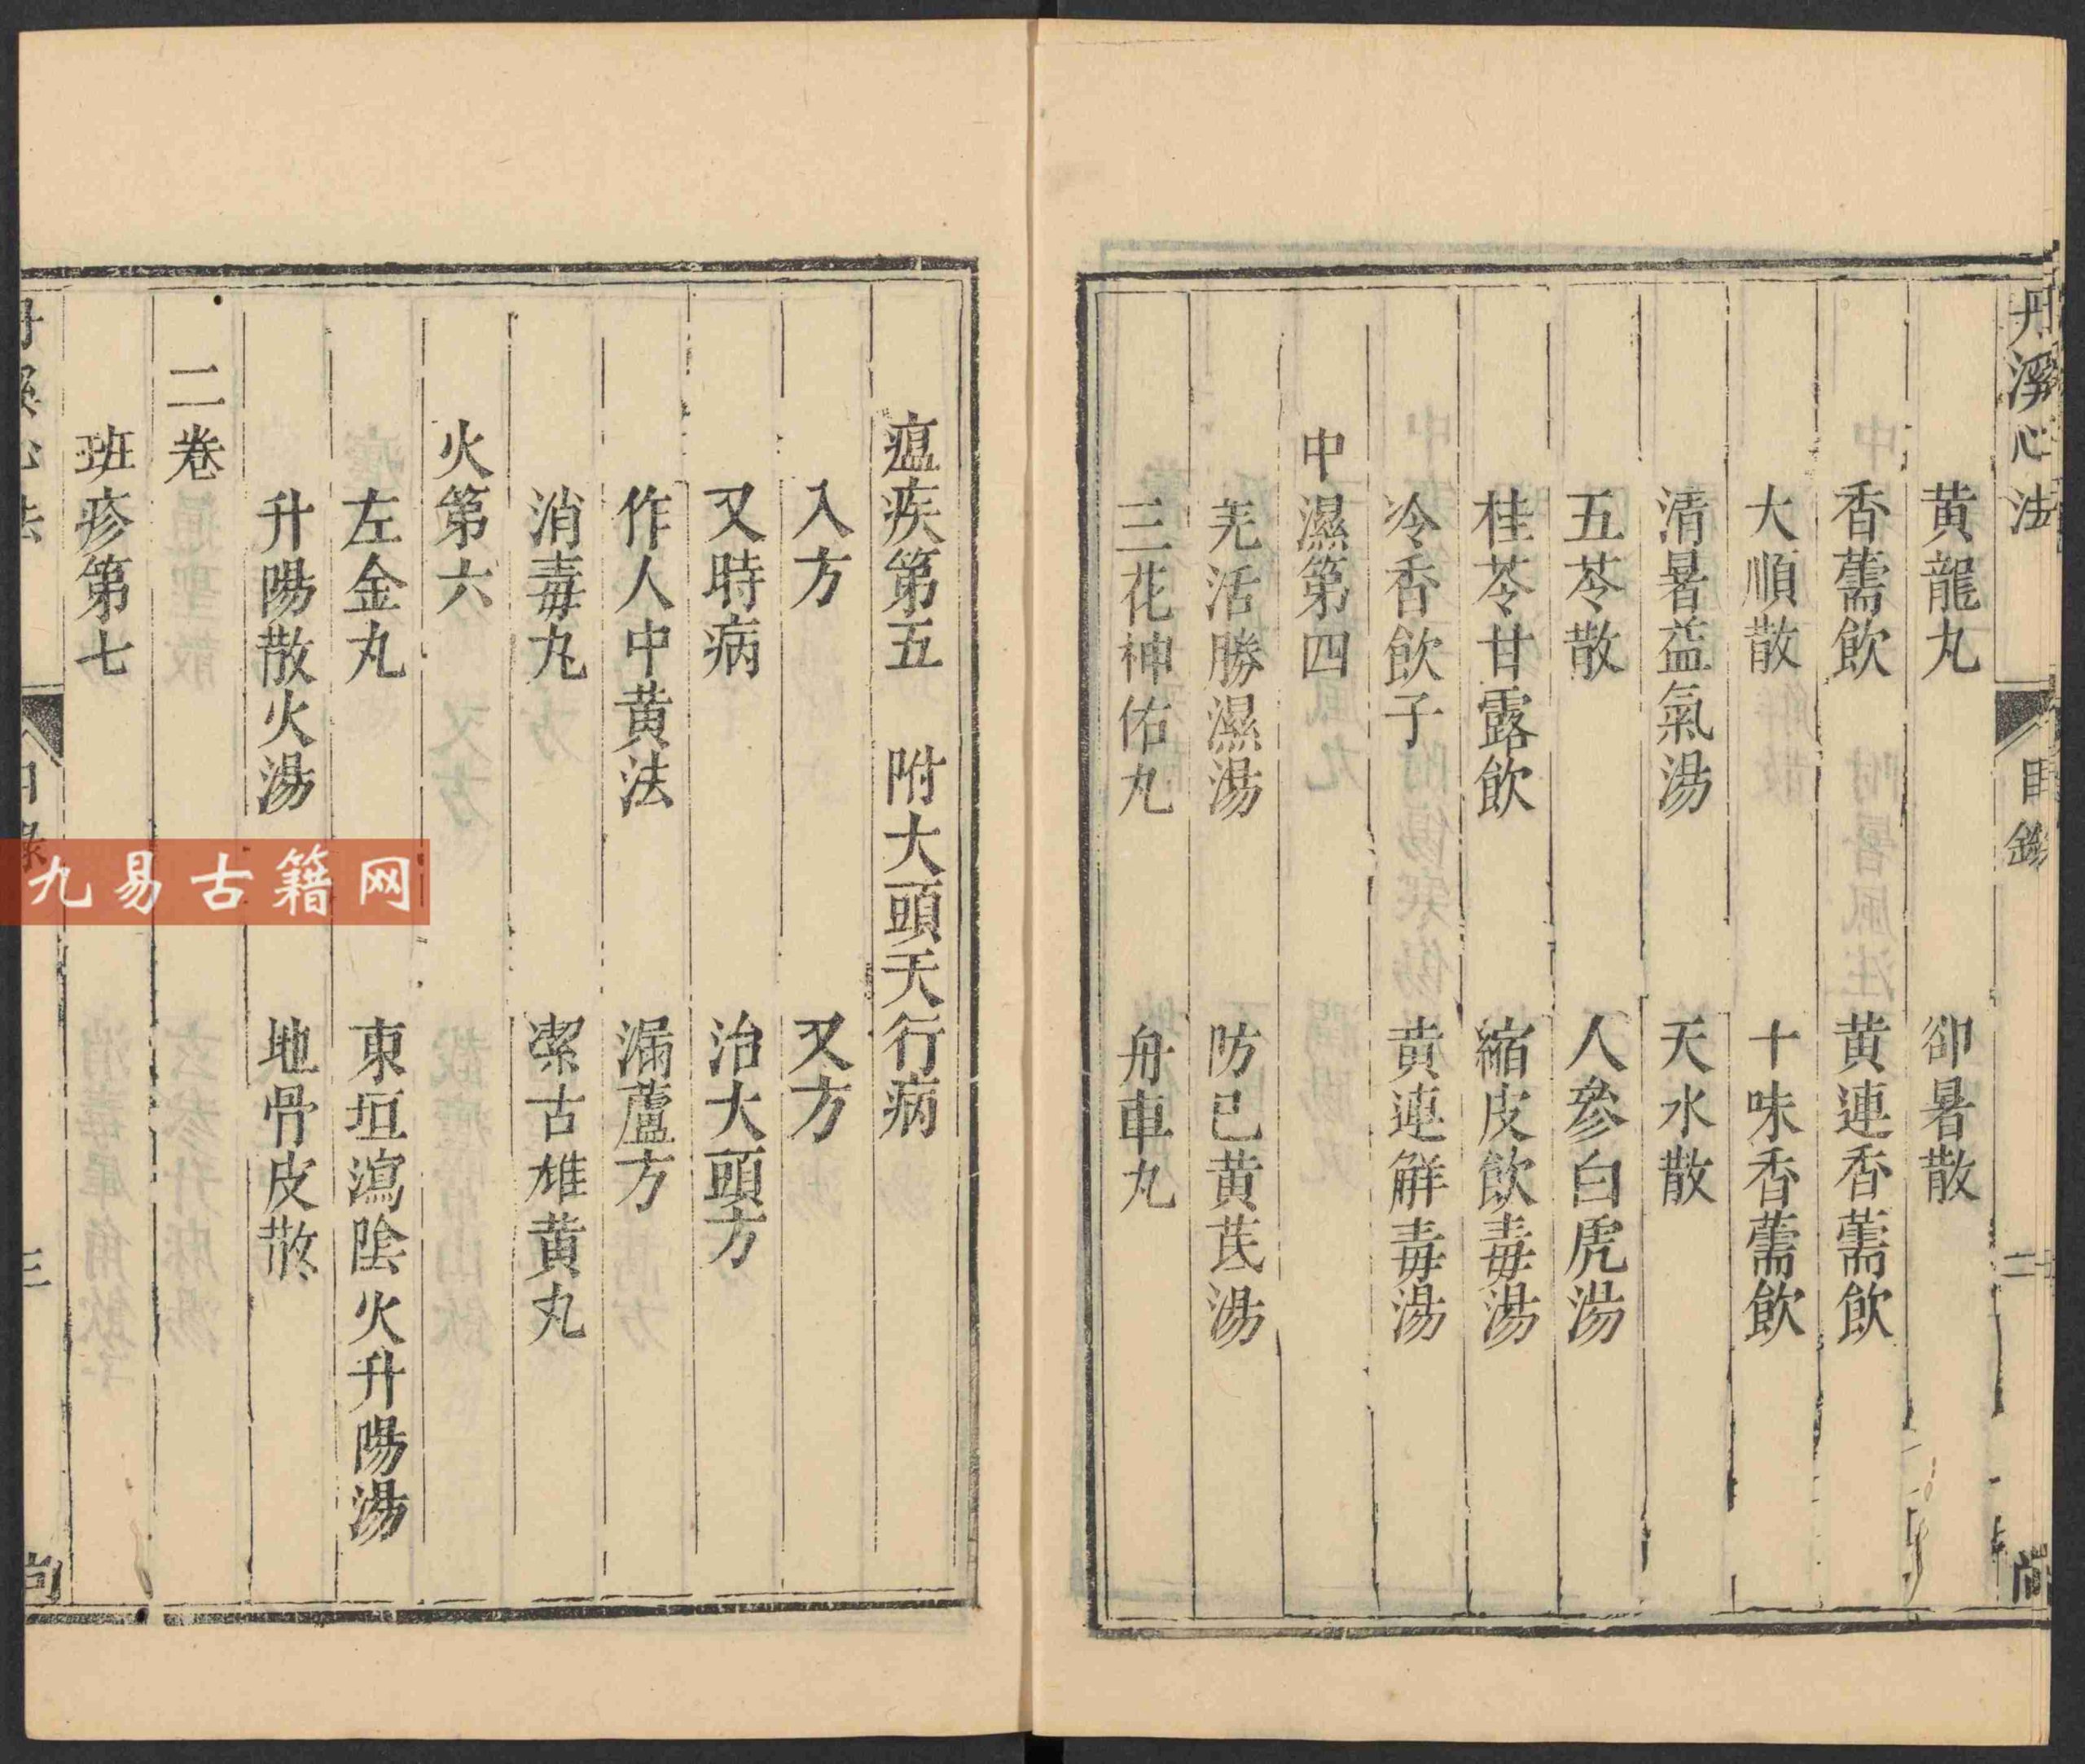 丹溪心法 目錄 二 尚
黃龍丸 卻暑散
香薷飲 黃連香薷飲
大順散 十味香薷飲
清暑益氣湯 天水散
五苓散 人參白虎湯
桂苓甘露飲 縮皮飲毒湯
冷香飲子 黃連解毒湯
中濕第四
羌活勝濕湯 防己黃芪湯
三花神佑丸 舟車丸
瘟疾第五 附大頭天行病
入方 又方
又時病 治大頭方
作人中黃法 漏蘆方
消毒丸 潔古雄黃丸
火第六
左金丸 東垣瀉陰火升陽湯
升陽散火湯 地骨皮散
二卷
班疹第七
丹溪心法 目錄 三
九易古籍网